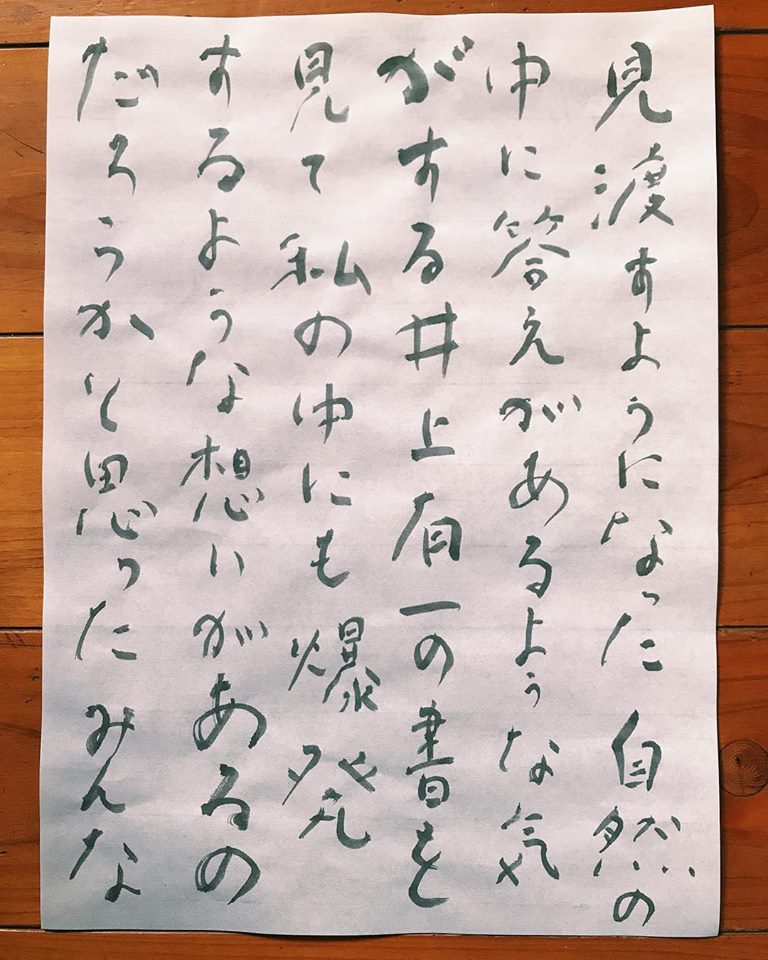 見渡すようになった自然の
中に答えがあるような気
がする井上有一の書を
見て私の中にも爆発
するような想いがあるの
だろうかと思ったみんな